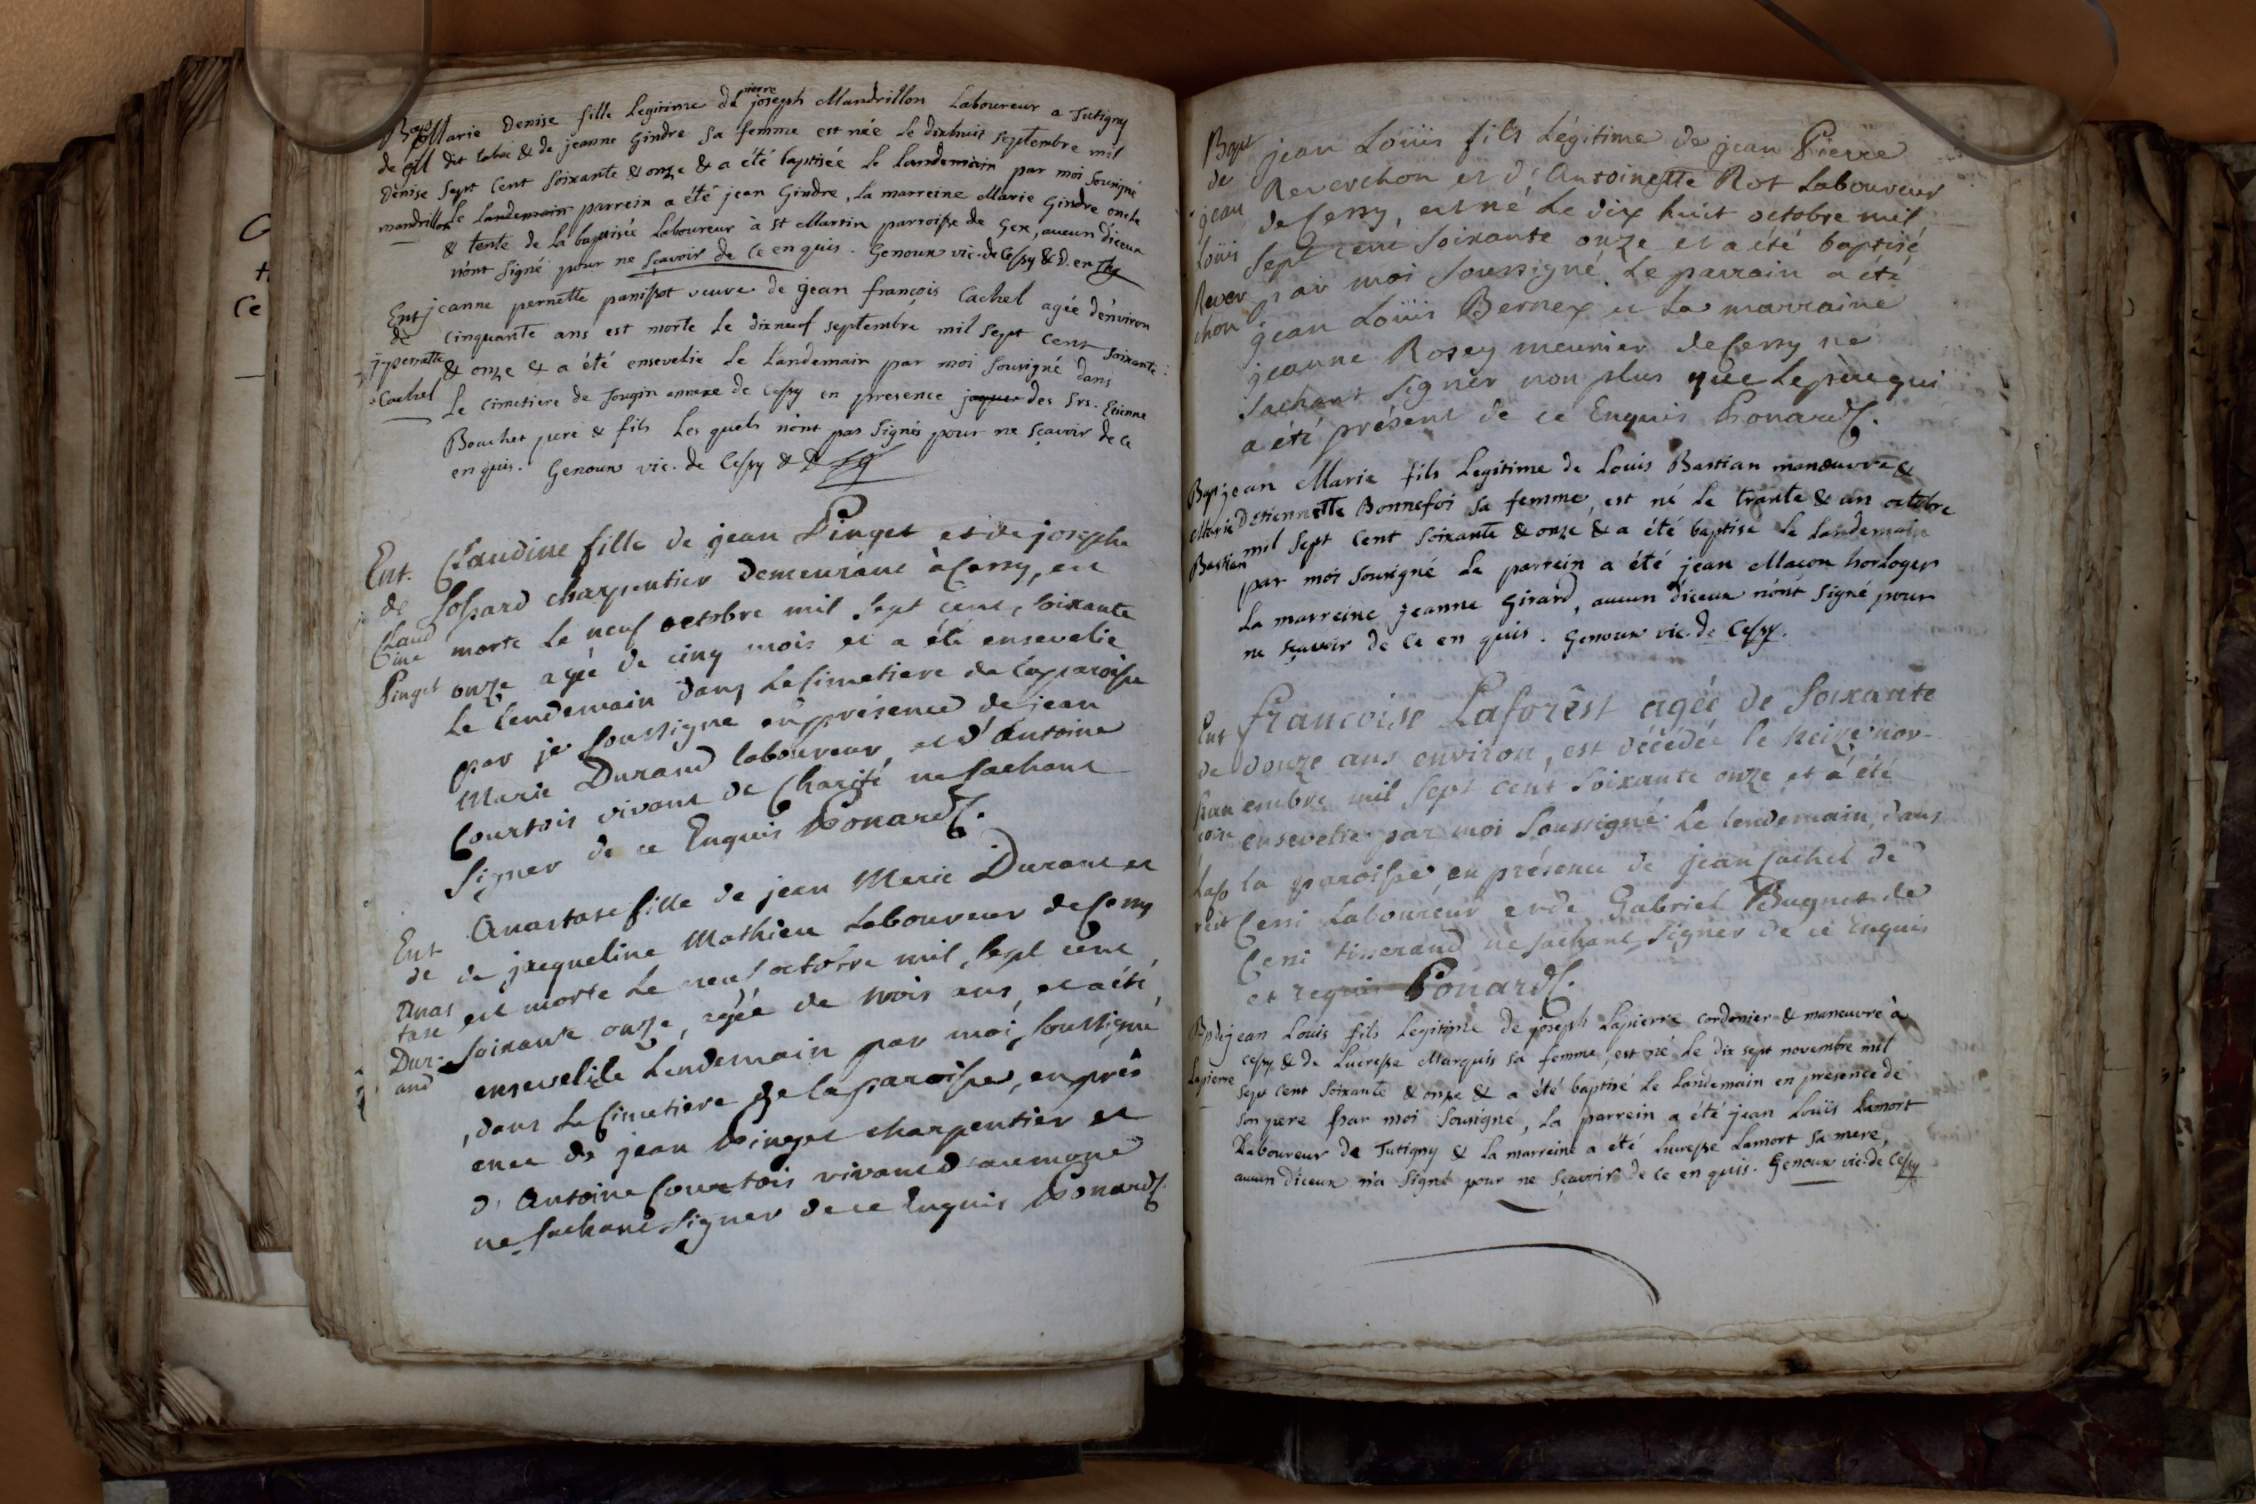 Bapt Marie Denise fille Legitime de pierre joseph Mandrillon Laboureur a Tutigny
de M dit labé & de jeanne Gindre Sa femme est née Le dixhuit Septembre mil
Denise Sept Cent Soixante & onze & a été baptisée Le Landemain par moi Sousigné
mandrillon Le Landemain parrein a été jean Gindre, La marreine Marie Gindre oncle
& tente de La baptisée Laboureur à St Martin parroisse de Gex, aucun diceux
nónt Signé pour ne Sçavoir de Ce en quis. Genoux vic. de Cessy & D. en
Ent jeanne pernette panissot veuve de jean françois Cachel agée dénviron
de Cinquante ans est morte Le dixneuf Septembre mil Sept Cent Soixante
jpernette & onze & a été ensevelie Le Landemain par moi Sousigné dans
Cachel Le Cimetiere de Sougin annexe de Cessy en presence des Srs. Etienne
Bouchet pere & fils Les quels nónt pas Signés pour ne Sçavoir de Ce
en quis. Genoux vic. de Cessy & D
Ent. Claudine fille de jean Pinget et de josephe
de Sossard charpentier demeurànt à Cessy, est
Claud morte Le neuf octobre mil Sept cent, soixante
ine onze agée de cinq mois et a été ensevelie
Pinget Le lendemain dans Le Cimetiere de La paroisse
par je Soussigné en présence de jean
Marie Durand laboureur et d'Antoine
Courtois vivant de Charité ne Sachant
Signer de ce Enquis Ponard C.
Ent Anastase fille de jean Marie Durant et
de de jacqueline Mathieu Laboureur de Cessy
Anas est morte Le neuf octobre mil, Sept cent
tase Soixante onze, agée de trois ans, et a été
Dur- ensevelie Le Lendemain par moi, Soussigné
and , dans Le Cimetiere de la paroisse, en prés
ence de jean Pinget charpentier et
d'Antoine Courtois vivant d'aumone
ne Sachant Signer de ce Enquis Ponard C.
Bapt jean Loüis fils Légitime de jean Pierre
de Reverchon et d'Antoinette Rot Laboureur
jean de Cessy, est né Le dix huit octobre mil
Loüis Sept cent Soixante onze et a été baptisé
Rever par moi Soussigné Le parrain a été
chon jean Loüis Bernex et La marraine
jeanne Rosey meunier de Cessy ne
Sachant Signer non plus que Le père qui
a été présent de ce Enquis Ponard C.
Bap jean Marie fils Legitime de Louis Bastian manœuvre &
Marie Détiennette Bonnefoi Sa femme, est né Le trante & un octobre
Bastian mil Sept Cent Soixante & onze & a été baptisé Le Landemain
par moi Sousigné Le parrein a été jean Maçon horloger
La marreine jeanne Girard, aucun diceux nónt Signé pour
ne Sçavoir de Ce en quis. Genoux vic. de Cessy.
Ent francoise Laforêst agée de Soixante
de douze ans environ, est décédée le treize nov-
fran embre mil Sept cent Soixante onze et a été
coise ensevelie par moi Soussigné Le lendemain, dans
Lafo la paroisse, en présence de jean Cachel de
rêst Cessi Laboureur et de Gabriel Bugnet de
Cessi tisserand ne Sachant Signer de ce Enquis
et requis Ponard C.
Bp de jean Louis fils Legitime de joseph Lapierre Cordonier & maneuvre à
Cessy & de Lucresse Marquis Sa femme, est né Le dix sept novembre mil
Lapierre Sept Cent Soixante & onze & a été baptisé Le Landemain en presence de
Son pere par moi Sousigné, La parrein a été jean Loüis Lamort
Laboureur de Tutigny & La marreine a été Lucresse Lamort Sa mere,
aucun diceux n'a Signé pour ne Sçavoir de Ce en quis. Genoux vic. de Cessy